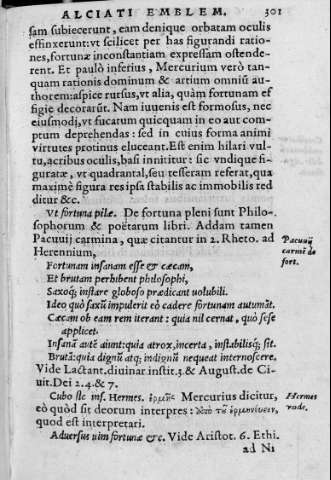 ALCIATI EMBLEM. 301
ſam ſubiecerunt, eam denique orbatam oculis
effinxerunt: vt ſcilicet per has figurandi ratio-
nes, fortunæ inconſtantiam expreſſam oſtende-
rent. Et paulò inferius, Mercurium verò tan-
quam rationis dominum & artium omniũ au-
thorem: aſpice rurſus, vt alia, quàm fortunam ef
figie decorarũt. Nam iuuenis eſt formoſus, nec
eiuſmodi, vt fucatum quicquam in eo aut com-
ptum deprehendas: ſed in cuius forma animi
virtutes protinus eluceant. Eſt enim hilari vul-
tu, acribus oculis, baſi innititur: ſic vndique fi-
guratæ, vt quadrantal, ſeu teſſeram referat, qua
maximè figura res ipſa ſtabilis ac immobilis red
ditur &c.
Vt fortuna pilæ. De fortuna pleni ſunt Philo-
ſophorum & poëtarum libri. Addam tamen
Pacuuij carmina, quæ citantur in 2. Rheto. ad
Herennium,
Pacuuij
carmĩ de
fort.
Fortunam inſanam eſſe & cæcam,
Et brutam perhibent philoſophi,
Saxoq́; inſtare globoſo prædicant uolubili.
Ideo quò ſaxũ impulerit eò cadere fortunam autumãt.
Cæcam ob eam rem iterant: quia nil cernat, quò ſeſe
applicet.
Inſanã autẽ aiunt: quia atrox, incerta, inſtabiliſq́; ſit.
Brutã: quia dignũ atq; indignũ nequeat internoſcere.
Vide Lactant. diuinar inſtit. 3. & Auguſt. de Ci-
uit. Dei 2. 4. & 7.
Cubo ſic inſ. Hermes. ἑρμῆς Mercurius dicitur,
Hermes
vnde.
eò quòd ſit deorum interpres: ἀπὸ τοῦ ἑρμηνεύειν,
quod eſt interpretari.
Aduerſus uim fortunæ &c. Vide Ariſtot. 6. Ethi.
ad Ni